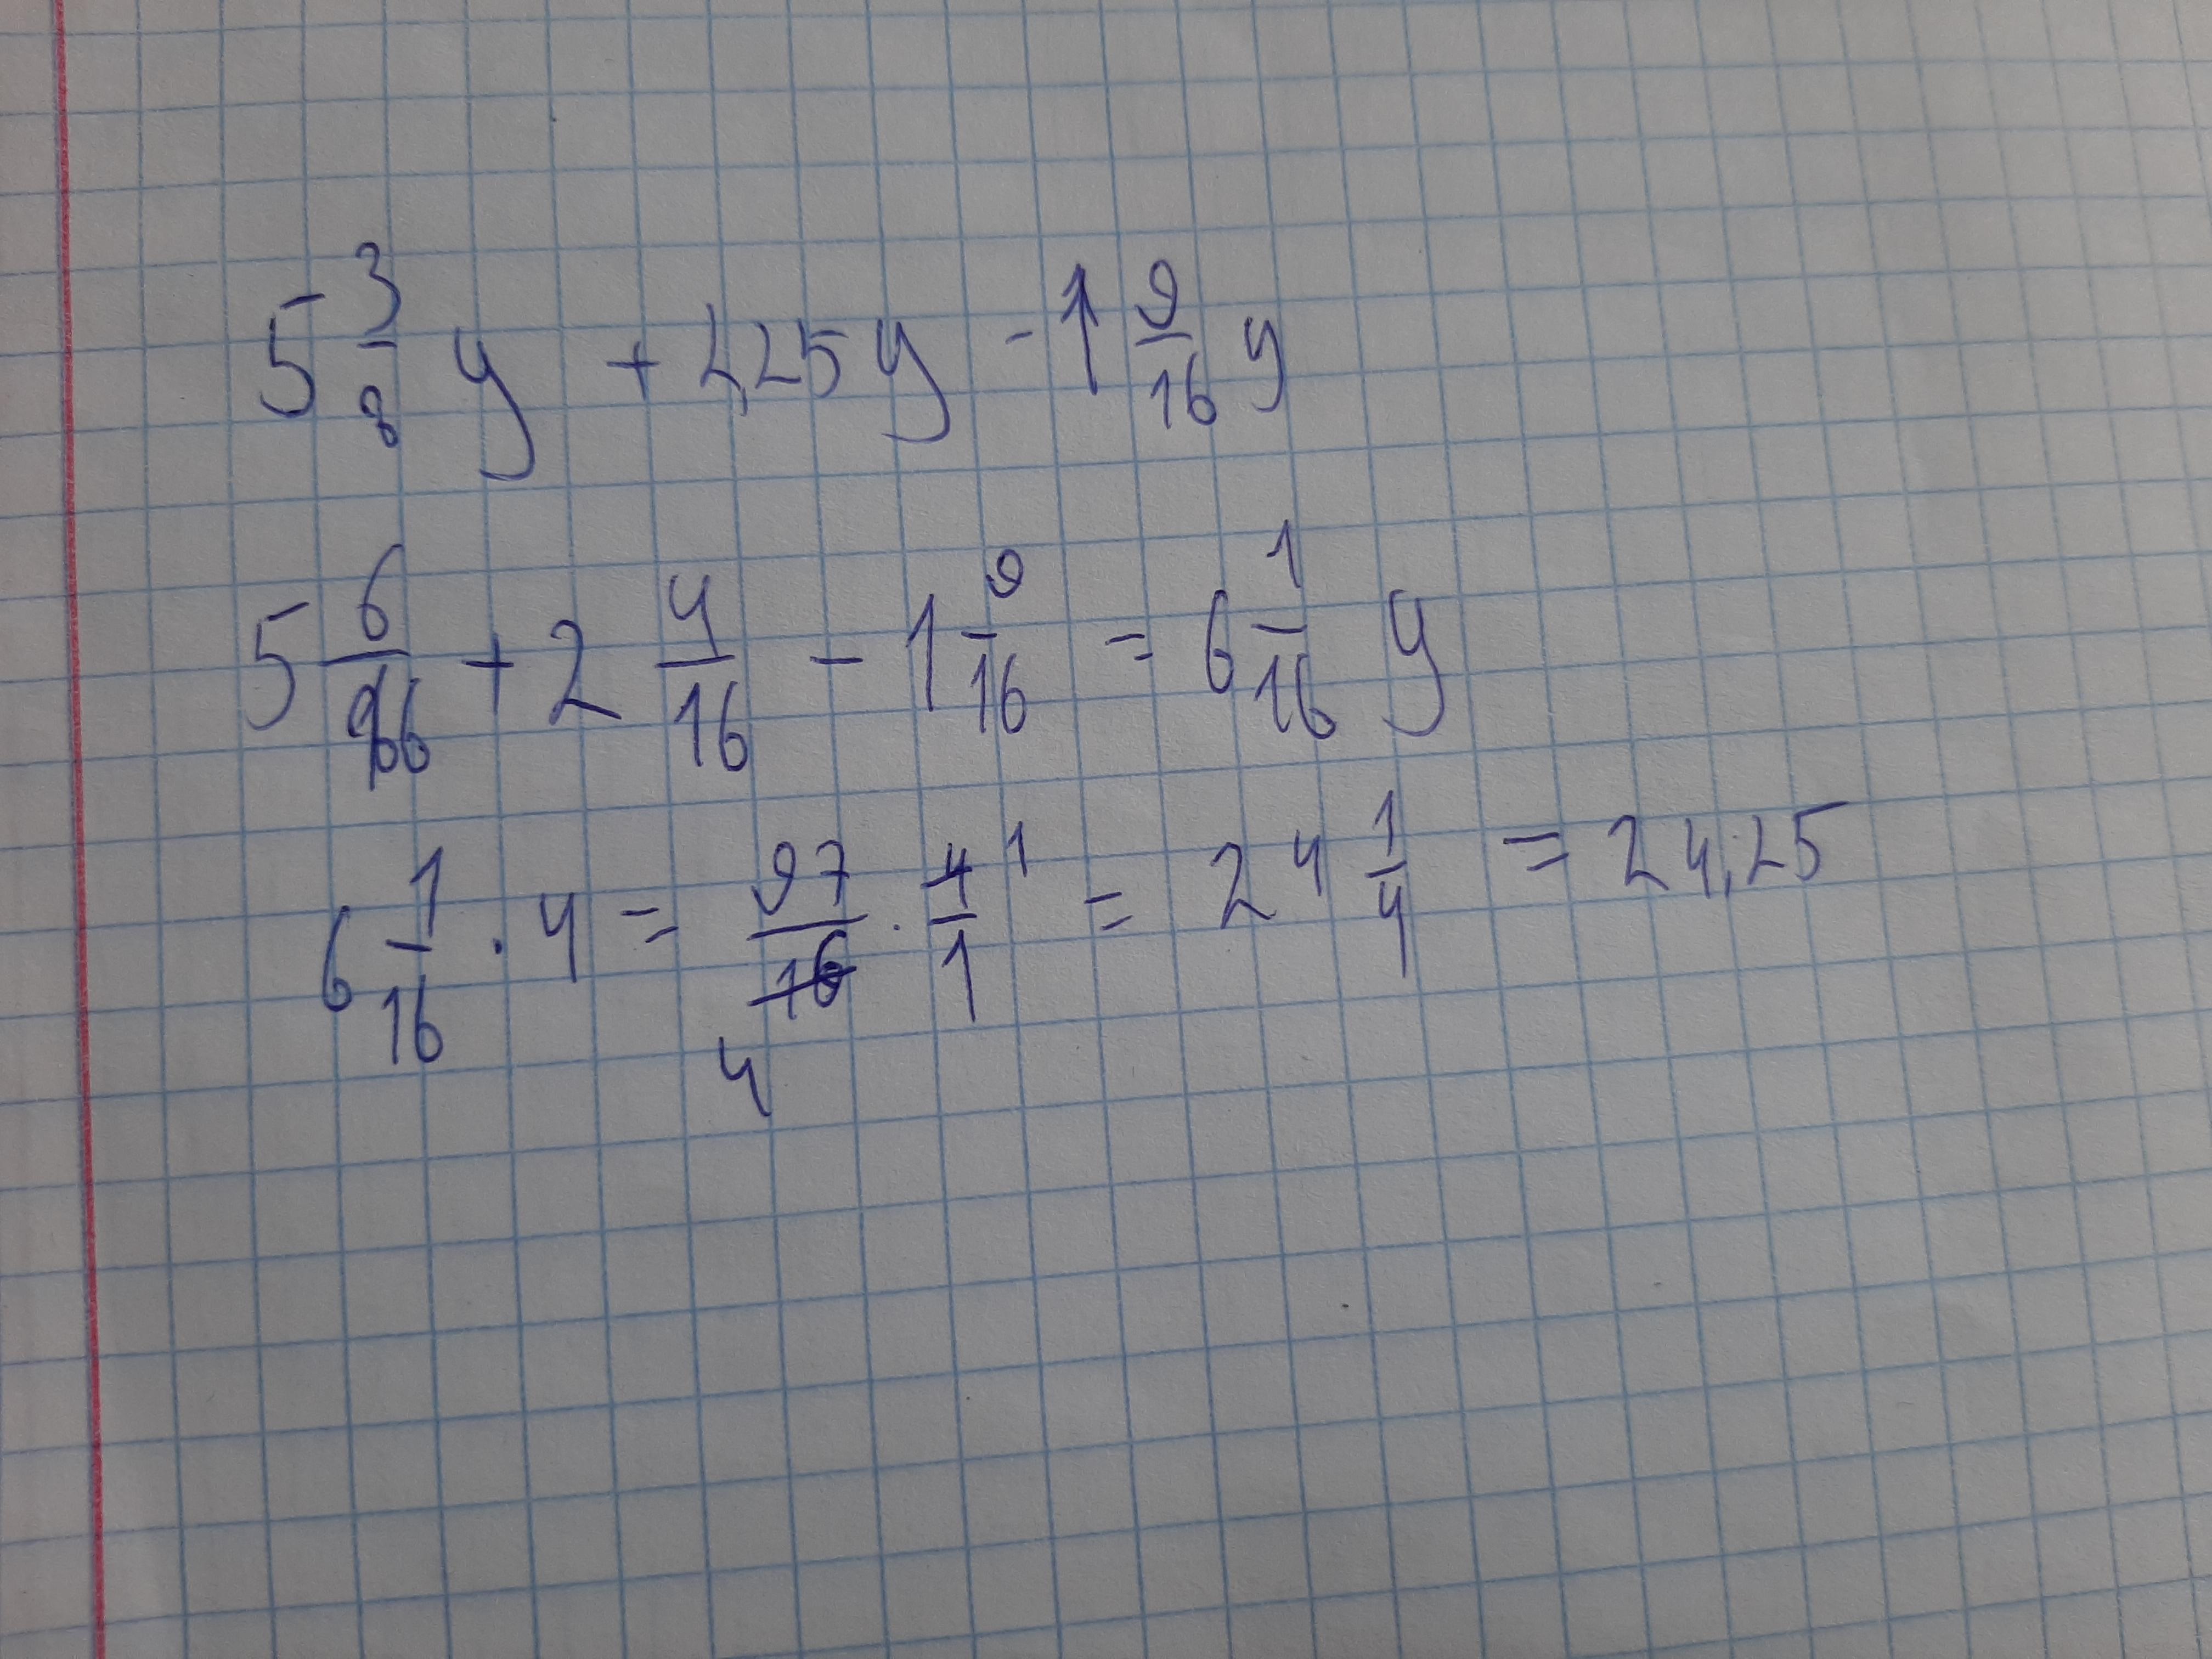 5 3/8 y + 2,25 y - 1 9/16 y
5 6/16 + 2 4/16 - 1 9/16 = 6 1/16 y
6 1/16 · 4 = 97/16 · 4/1 = 24 1/4 = 24,25
4 1